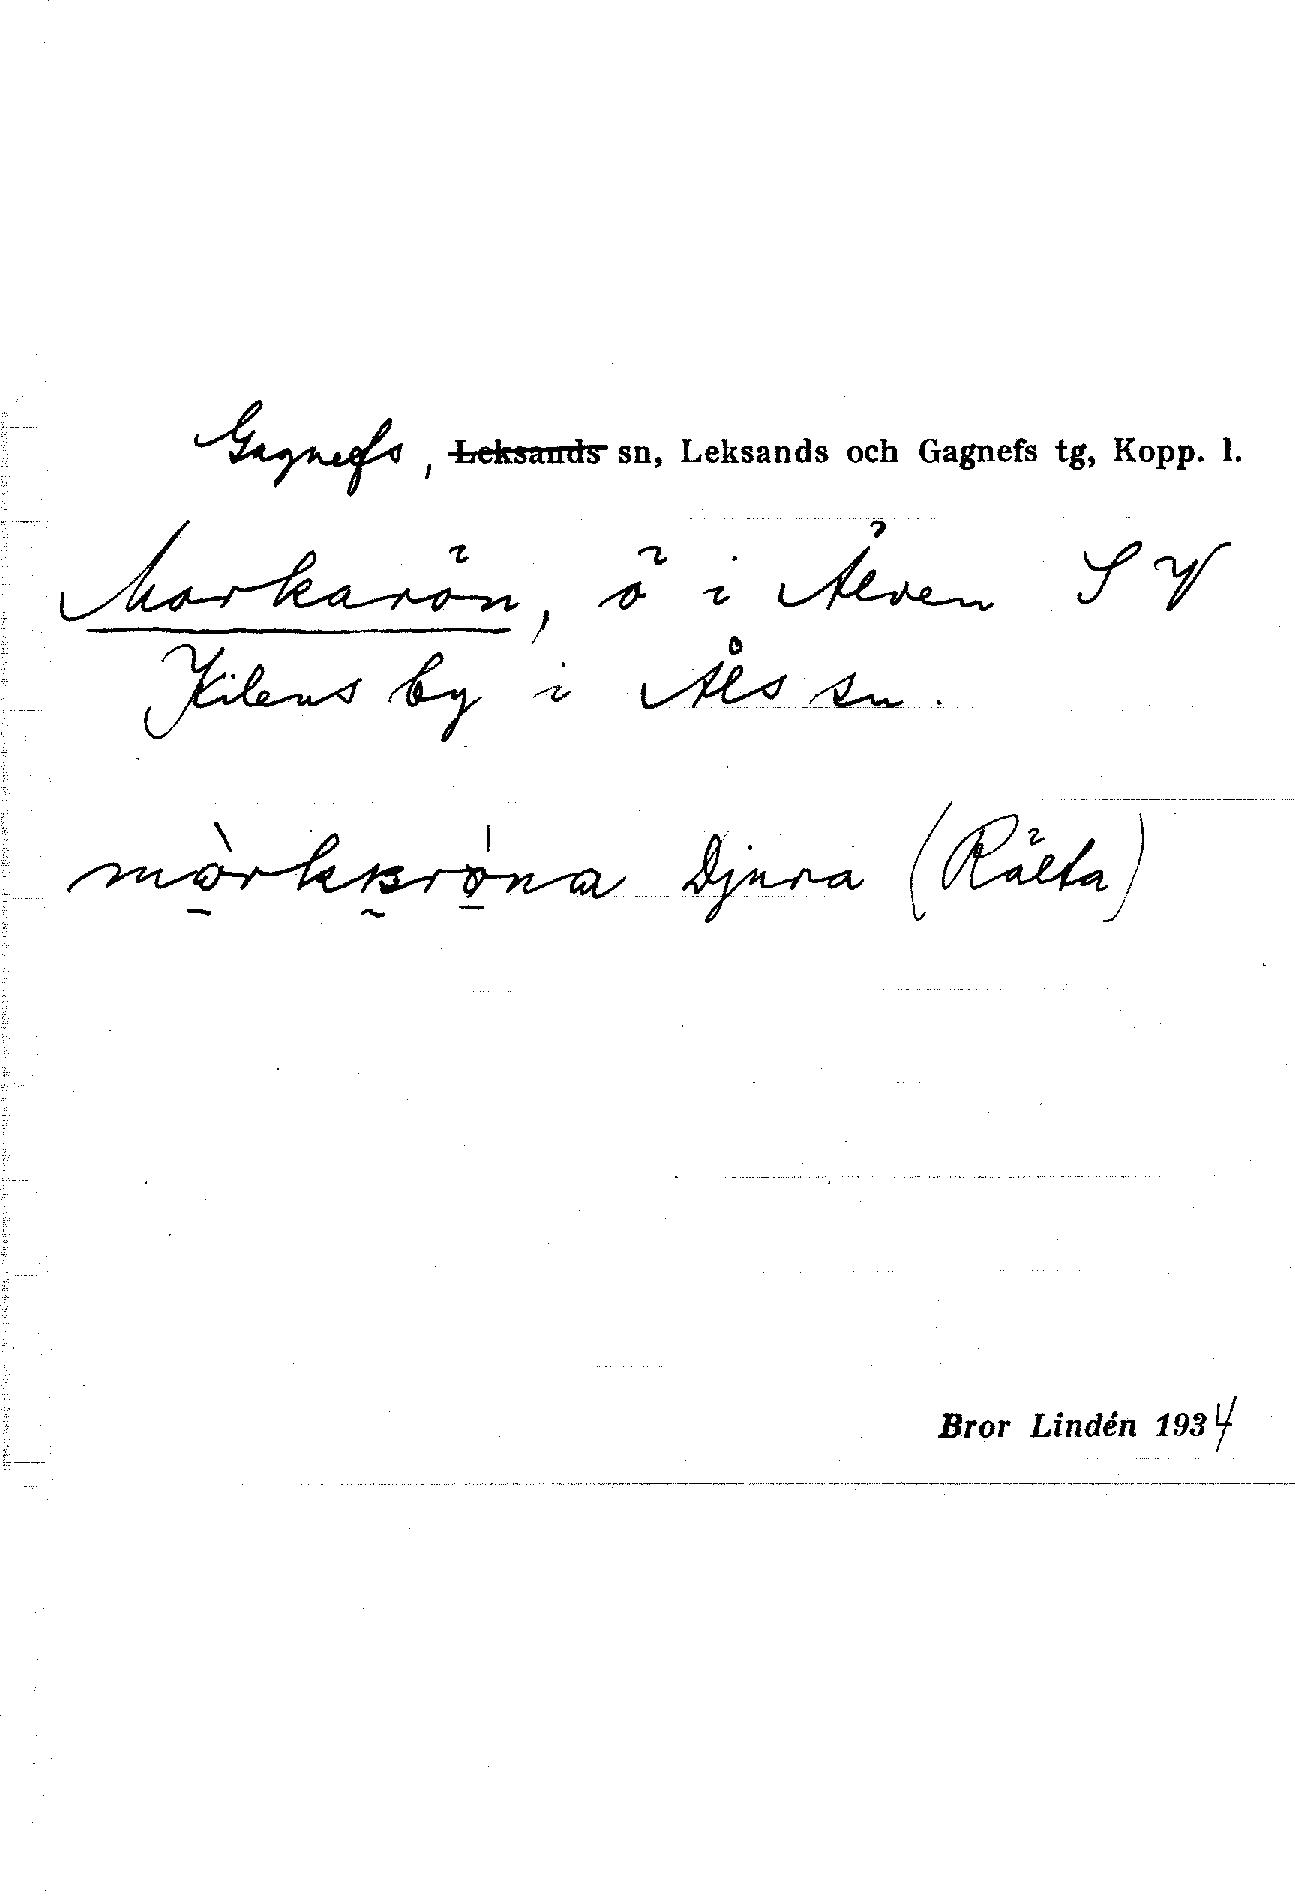 Gagnefs, Leksands sn, Leksands och Gagnefs tg, Kopp. l.
Morkarön, ö i Älven SV
Kilens by i Åls sn.
Djura (Rälta)
Bror Lindén 1934